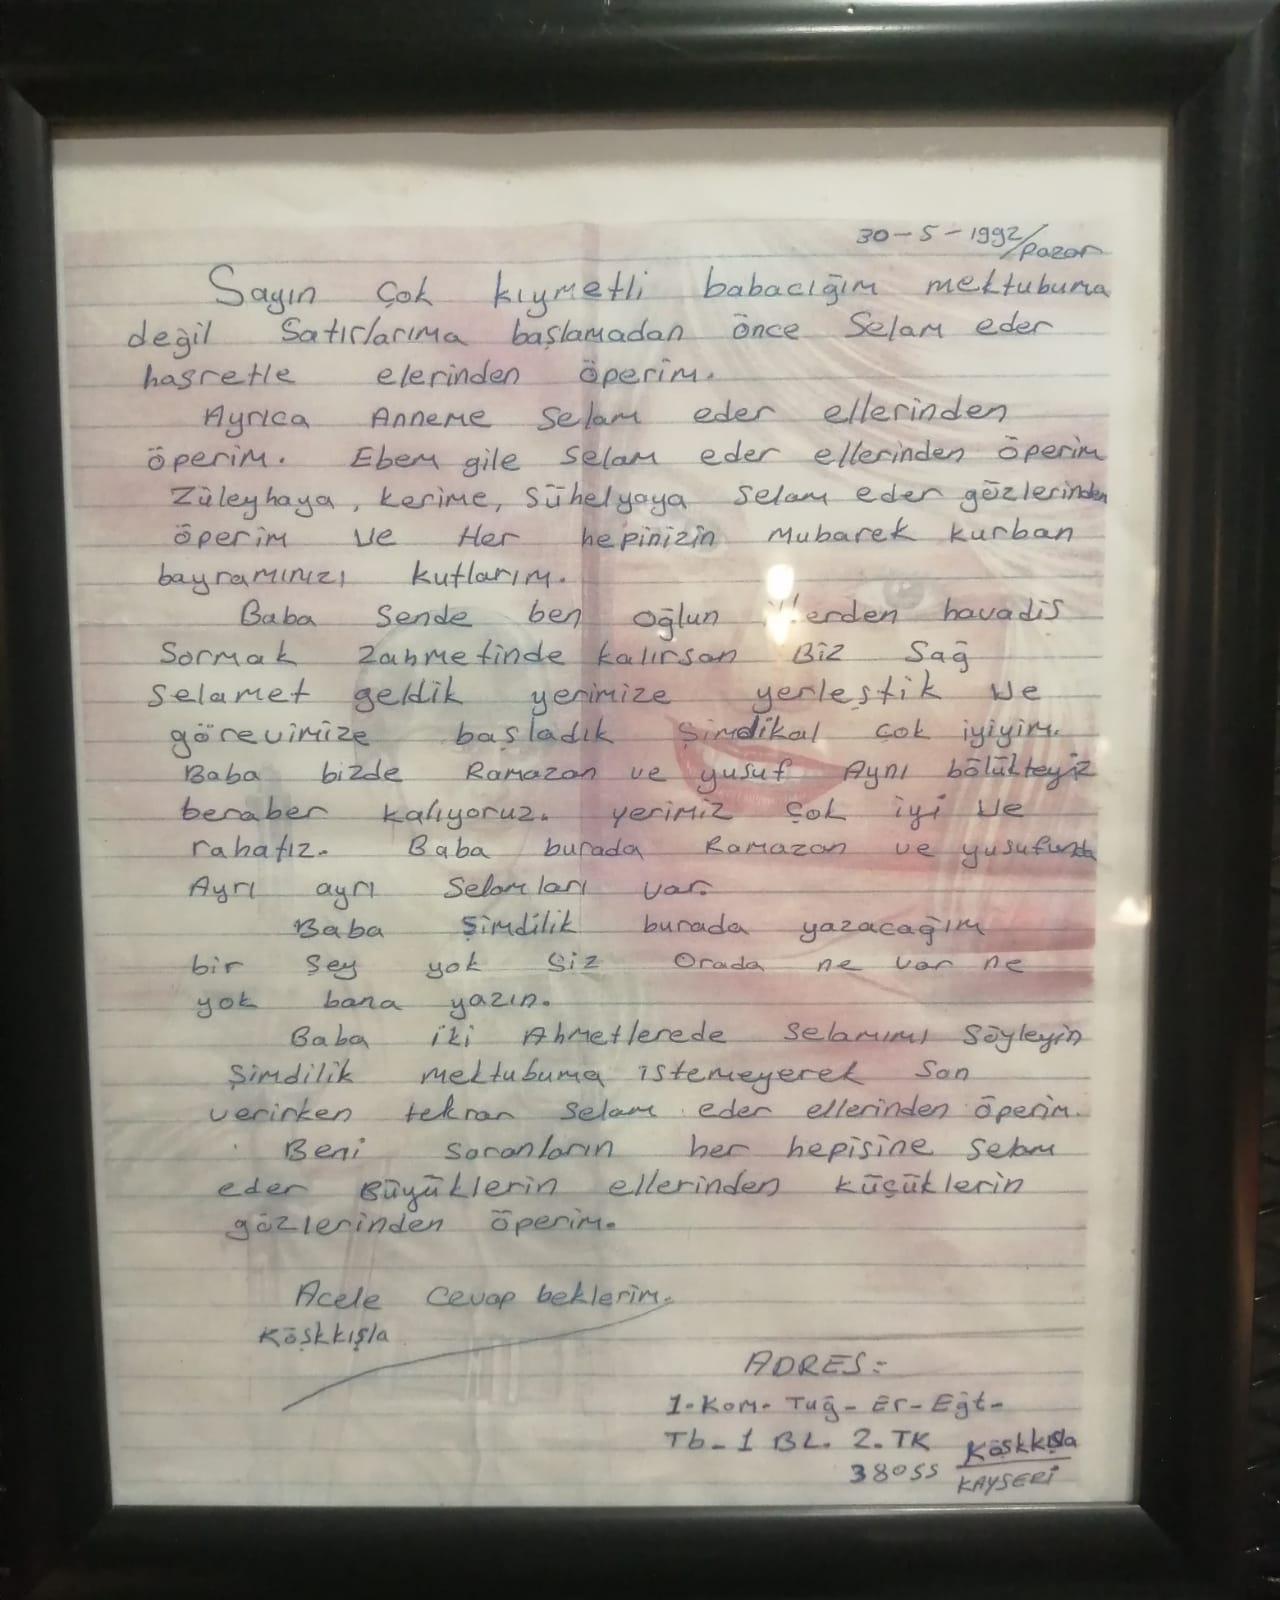 30-5-1992/pazar
Sayın çok kıymetli babacığım mektubuma
değil Satırlarıma başlamadan önce Selam eder
hasretle elerinden öperim.
Ayrıca Anneme Selam eder ellerinden
öperim. Ebem gile Selam eder ellerinden öperim
Züleyhaya, kerime, Sühelyaya Selam eder gözlerinden
öperim ve Her hepinizin Mubarek kurban
bayramınızı kutlarım.
Baba Sende ben oğlun havadis
Sormak zahmetinde kalırsan Biz Sağ
Selamet geldik yerimize yerleştik ve
görevimize başladık Şimdikal çok iyiyim.
Baba bizde Ramazan ve yusuf Aynı bölükteyiz
beraber kalıyoruz. yerimiz çok iyi ve
rahatız. Baba burada Ramazan ve yusufunda
Ayrı ayrı Selamları var.
Baba Şimdilik burada yazacağım
bir Şey yok Siz Orada ne var ne
yok bana yazın.
Baba iki Ahmetlerede Selamımı Söyleyin
Şimdilik mektubuma istemeyerek Son
verirken tekrar Selam eder ellerinden öperim.
Beni Soranların her hepisine Selam
eder Büyüklerin ellerinden küçüklerin
gözlerinden öperim.
Acele Cevap beklerim.
Köşkkışla
ADRES=
1-Kom. Tuğ- Er- Eğt-
Tb- 1 BL. 2. TK Köşkkışla
38055 KAYSERİ